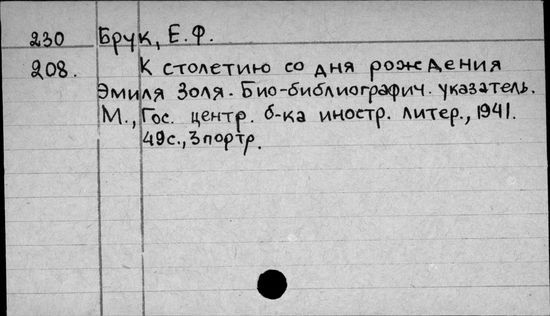 230 Брук, Е.Ф.
208. К столетию со дня рождения
Эмиля Золя. Био-библиографич. указатель.
М., Гос. центр. б-ка иностр. литер., 1941.
49с., 3 портр.